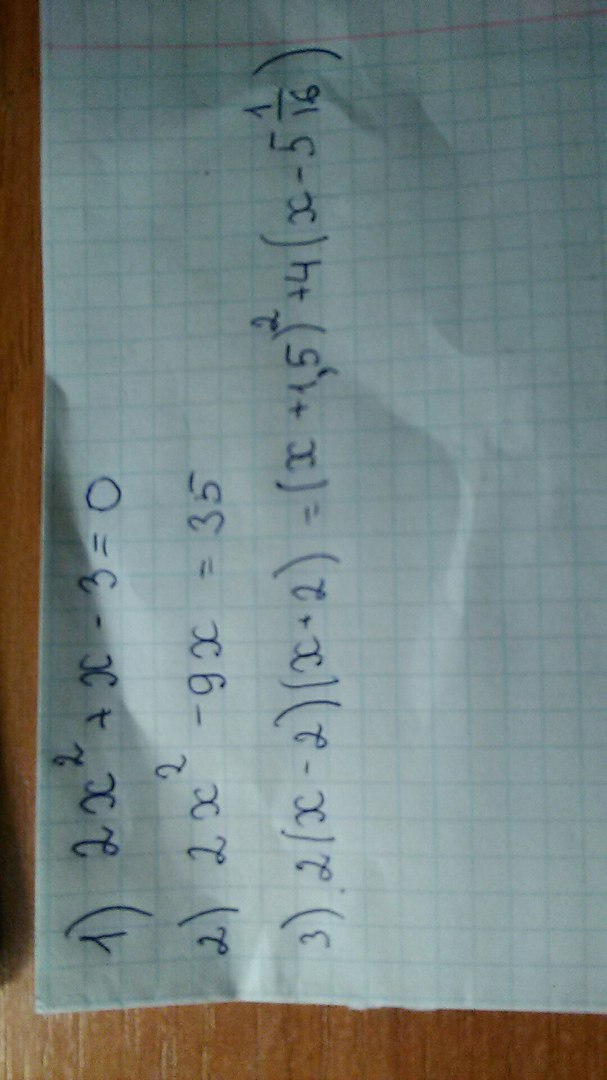 1) 2x² + x - 3 = 0
2) 2x² - 9x = 35
3) 2(x - 2)(x + 2) = (x + 1,5)² + 4(x - 5 1/16)